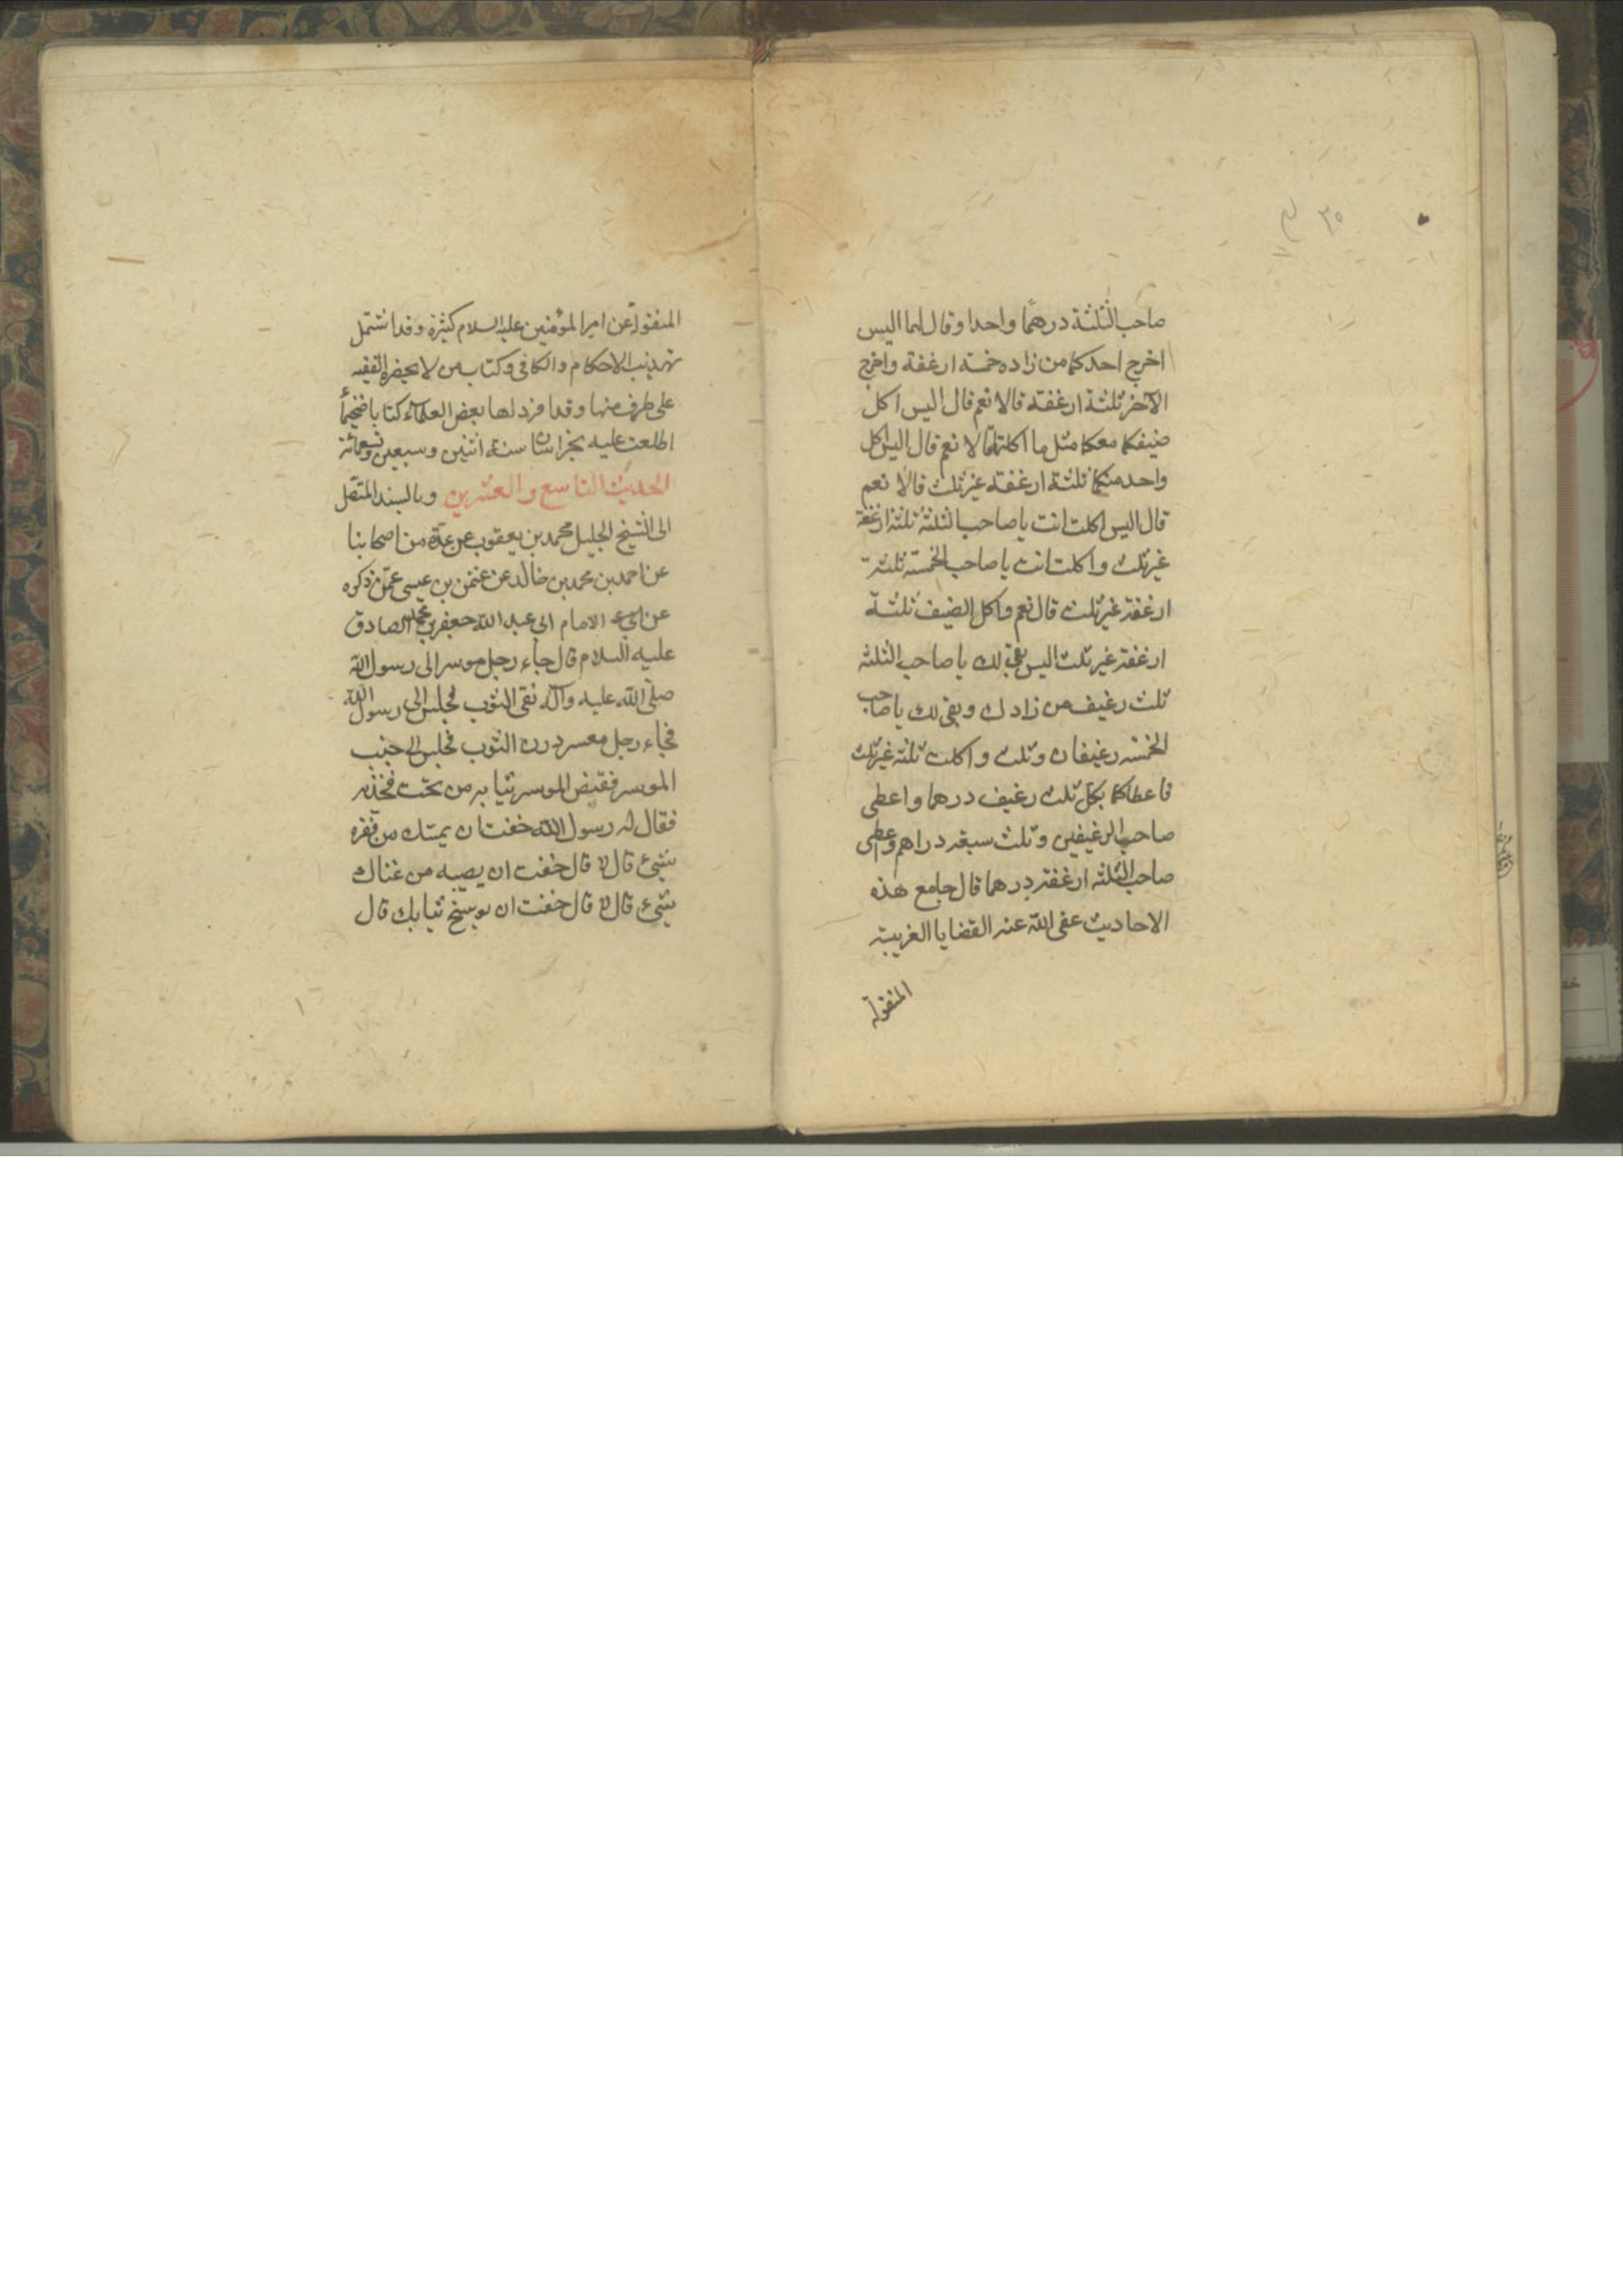 ٣٥
صاحب الثلثة درهمًا واحدا وقال لهما اليس
اخرج احدكما من زاده خمسة ارغفة واخرج
الآخر ثلثة ارغفة قالا نعم قال اليس اكل
ضيفكما معكما مثل ما اكلتما قالا نعم قال اليس اكل
واحد منكما ثلثة ارغفة غير ثلث قالا نعم
قال اليس اكلت انت يا صاحب الثلثة ثلثة ارغفة
غير ثلث واكلت انت يا صاحب الخمسة ثلثة
ارغفة غير ثلث قال نعم واكل الضيف ثلثة
ارغفة غير ثلث اليس بقي لك يا صاحب الثلثة
ثلث رغيف من زادك وبقى لك يا صاحب
الخمسة رغيفان وثلث واكلت ثلثة غير ثلث
فاعطاكما بكل ثلث رغيف درهما واعطى
صاحب الرغيفين وثلث سبعة دراهم واعطى
صاحب الثلثة ارغفة درهما قال جامع هذه
الاحاديث عفى الله عنه القضايا الغريبة
المنقولة
المنقولة عن امير المؤمنين عليه السلام كثيرة وقد اشتمل
تهذيب الاحكام والكافى وكتاب من لا يحضره الفقيه
على طرف منها وقد افرد لها بعض العلماء كتابا ضخيماً
اطلعت عليه بخراسان سنة اثنين وسبعين وتسعمائة
الحديث التاسع والعشرين وبالسند المتصل
الى الشيخ الجليل محمد بن يعقوب عن عدّة من اصحابنا
عن احمد بن محمد بن خالد عن عثمن بن عيسى عمّن ذكره
عن الامام ابى عبد الله جعفر بن محمد الصادق
عليه السلام قال جاء رجل موسر الى رسول الله
صلّى الله عليه وآله نقى الثوب فجلس الى رسول الله
فجاء رجل معسر درن الثوب فجلس الى جنب
الموسر فقبض الموسر ثيابه من تحت فخذيه
فقال له رسول الله خفت ان يمسّك من فقره
شىء قال لا قال خفت ان يصيبه من غناك
شىء قال لا قال خفت ان يوسّخ ثيابك قال